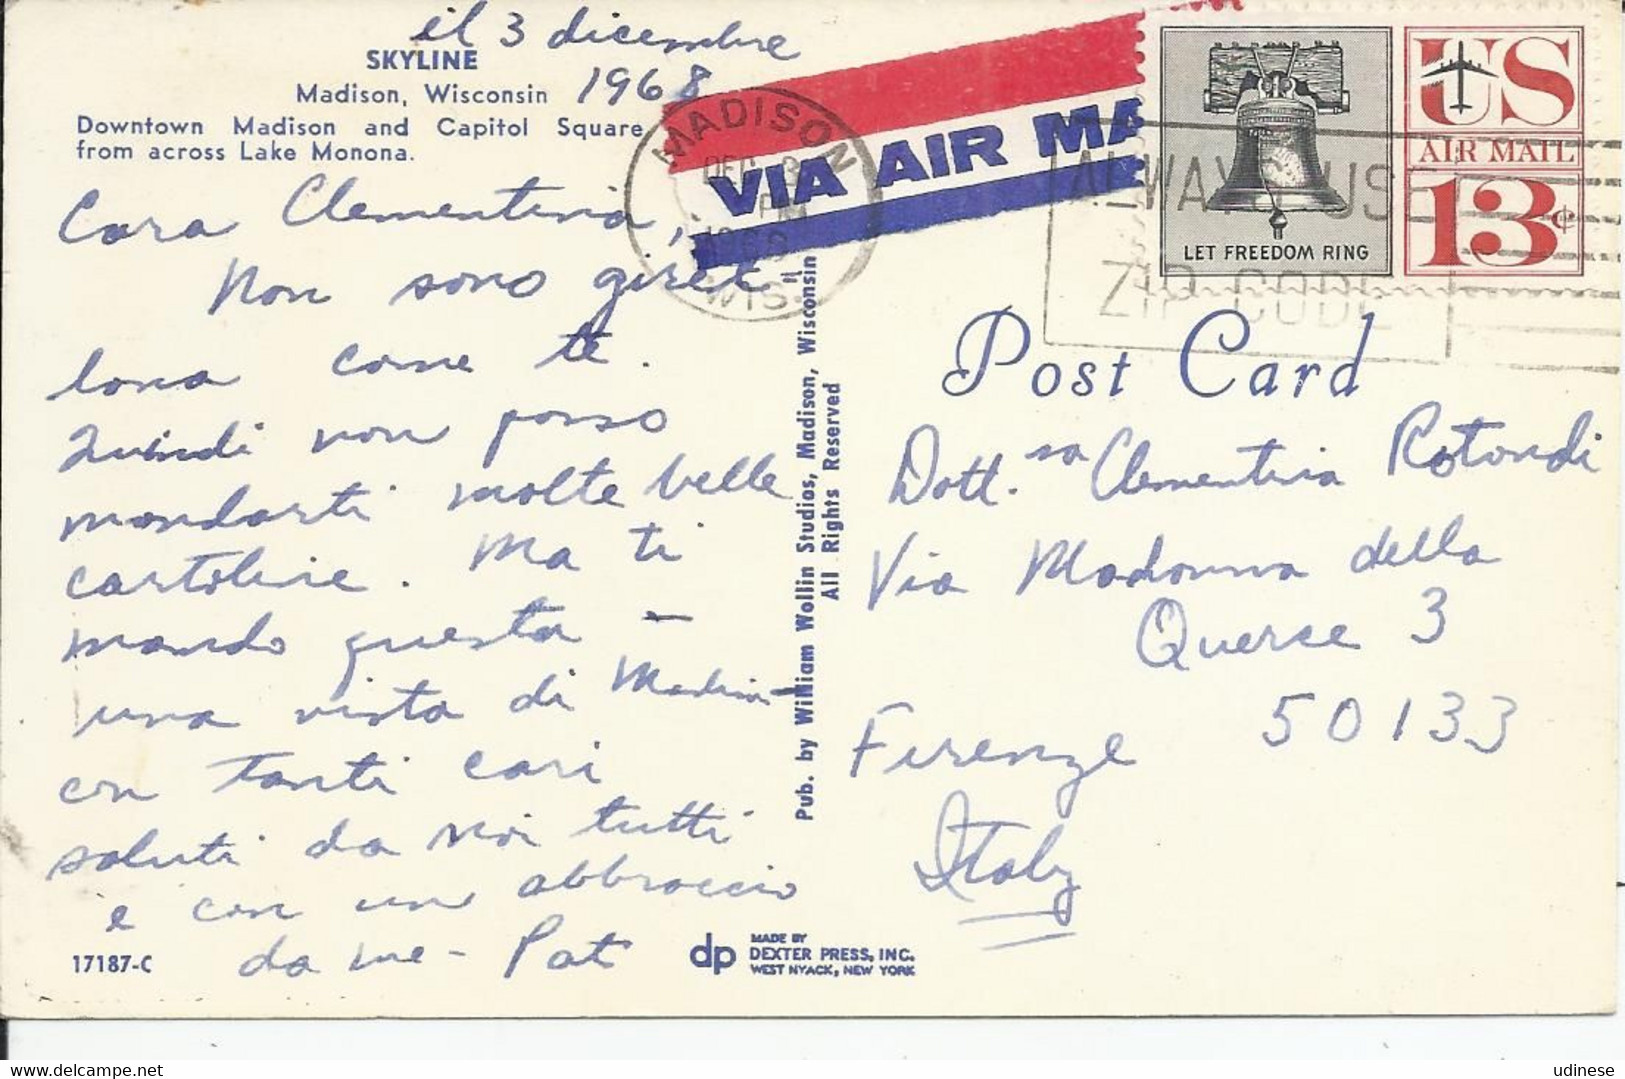 il 3 dicembre
1968
SKYLINE
Madison, Wisconsin
Downtown Madison and Capitol Square
from across Lake Monona.
Cara Clementina,
Non sono girel
lona come te.
Quindi non posso
mandarti molte belle
cartoline. Ma ti
mando questa –
una vista di Madison –
con tanti cari
saluti da noi tutti
e con un abbraccio
da me – Pat
17187-C
dp MADE BY
DEXTER PRESS, INC.
WEST NYACK, NEW YORK
Pub. by William Wollin Studios, Madison, Wisconsin
All Rights Reserved
MADISON
DEC 3
PM
1968
WIS.
VIA AIR MA
ALWAYS USE
ZIP CODE
LET FREEDOM RING
US
AIR MAIL
13¢
Post Card
Dott.sa Clementina Rotondi
Via Madonna della
Querce 3
Firenze 50133
Italy
udinese